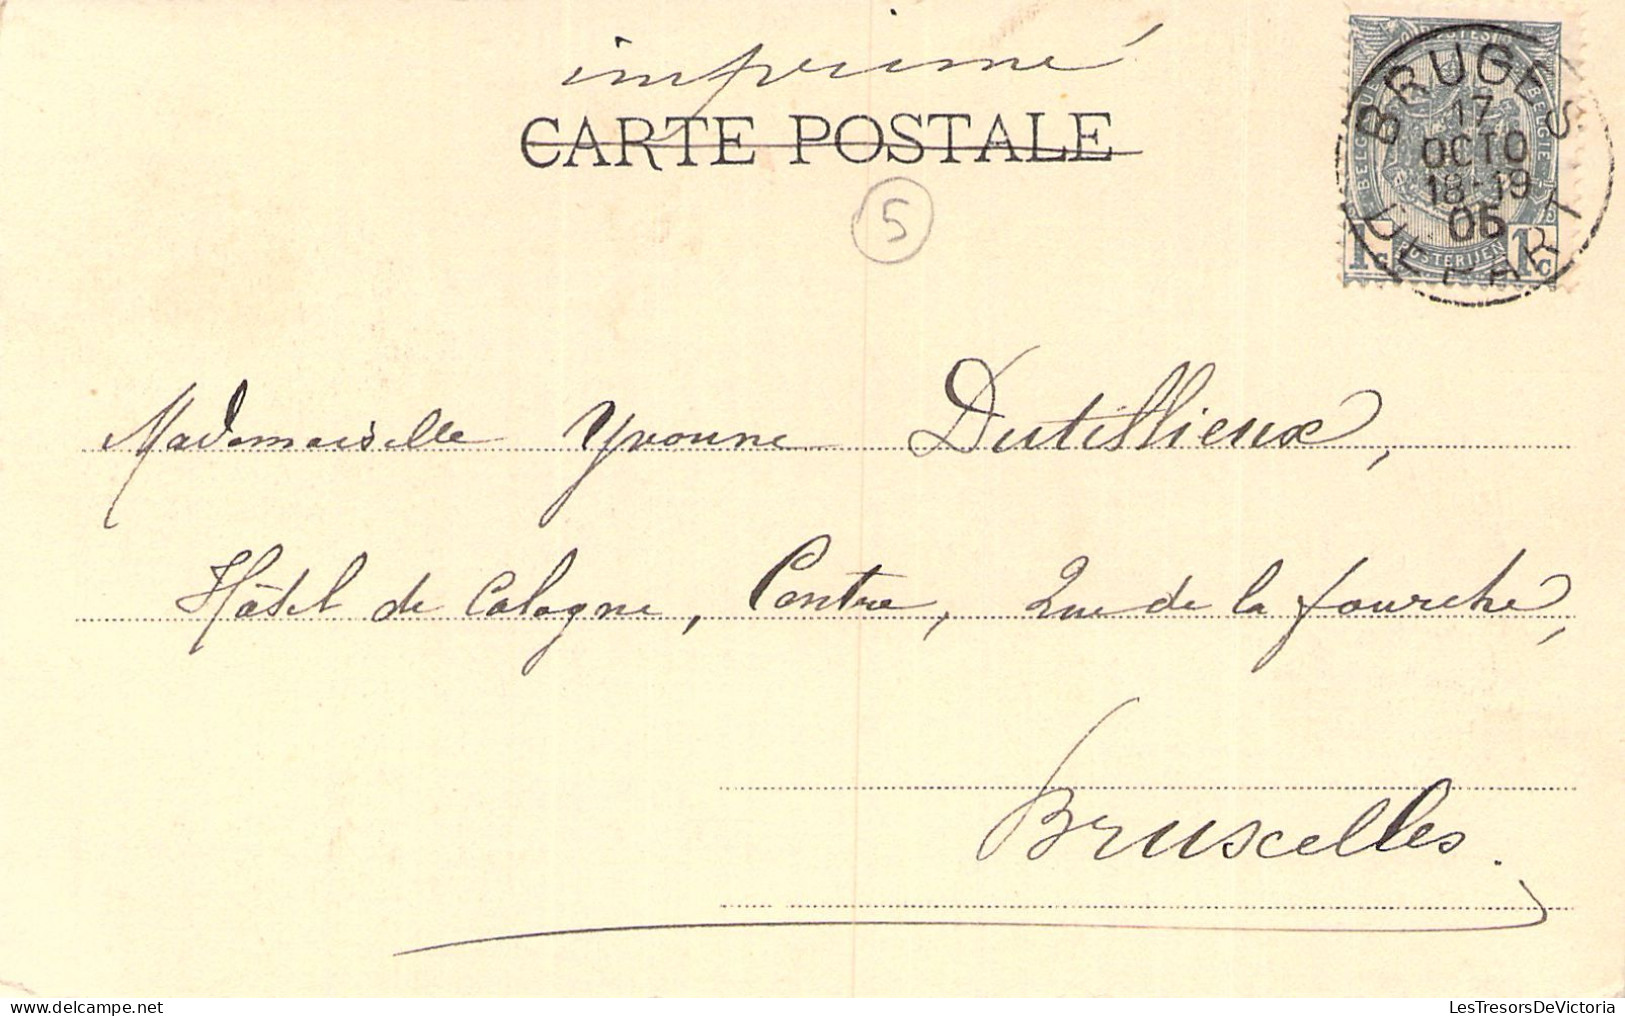 imprimé
CARTE POSTALE
5
BELGIQUE POSTES POSTERIJEN BELGIE
1c 1c
BRUGES
17
OCTO
18-19
05
DEPART
Mademoiselle Yvonne Dutillieux,
Hôtel de Cologne, Centre, Rue de la fourche,
Bruxelles.
LesTresorsDeVictoria
www.delcampe.net